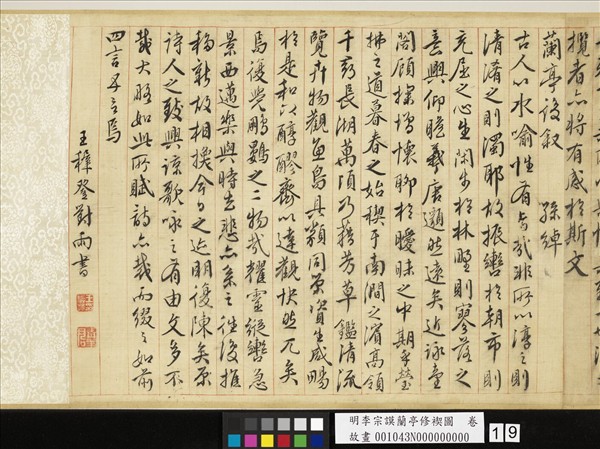 攬者亦將有感於斯文
蘭亭後叙 孫綽
古人以水喻性有旨哉非所以渟之則
清淆之則濁耶故振轡於朝市則
充屈之心生閑步於林野則寥落之
意興仰瞻羲唐邈然遠矣近詠臺
閣顧探增懷聊於曖昧之中期乎瑩
拂之道暮春之始禊于南澗之濱高領
千尋長湖萬頃乃藉芳草鑑清流
覽卉物觀魚鳥具類同榮資生咸暢
於是和以醇醪齊以達觀快然兀矣
焉復覺鵬鷃之二物哉耀靈縱轡急
景西邁樂與時去悲亦系之往復推
移新故相換今日之迹明復陳矣原
詩人之致興諒歌咏之有由文多不
載大略如此所賦詩亦裁而綴之如前
四言五言焉
王穉登對雨書
明李宗謨蘭亭修禊圖 卷
故畫 001043N000000000
19